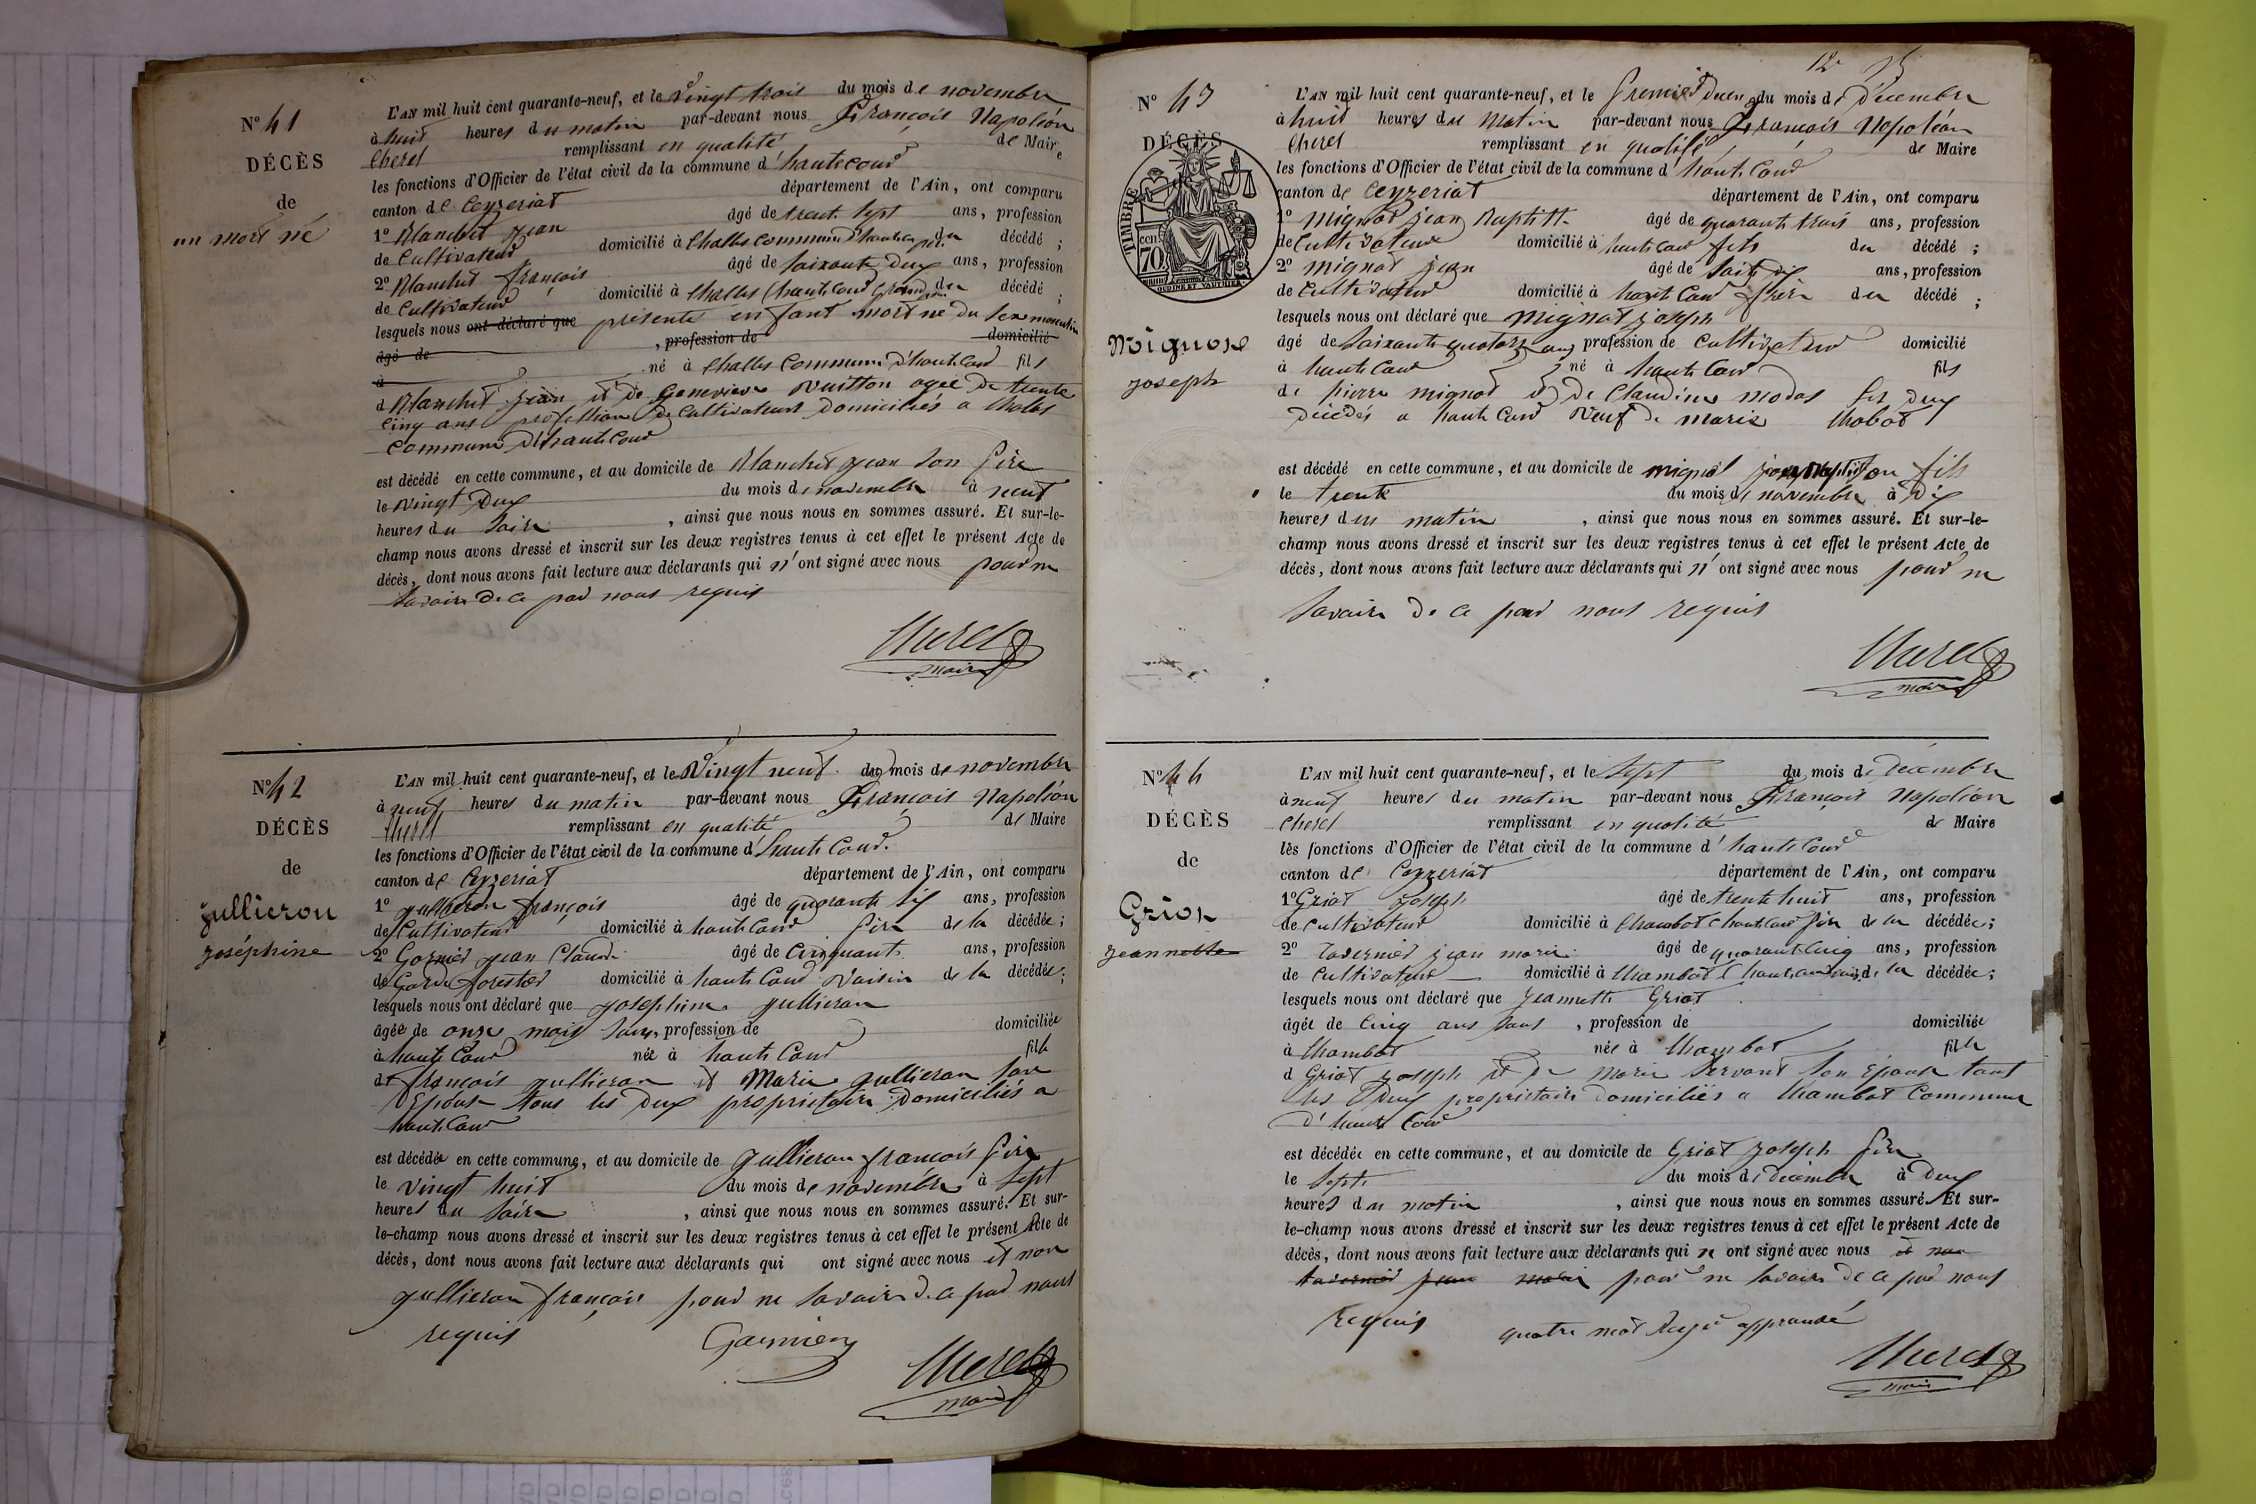 N° 41
DÉCÈS
de
un mort né
L'AN mil huit cent quarante-neuf, et le vingt trois du mois de novembre
à huit heures du matin par-devant nous François Napoléon
Cheret remplissant en qualité de Maire
les fonctions d'Officier de l'état civil de la commune d'hautecour
canton de Ceyzeriat département de l'Ain, ont comparu
1° Blanchet jean âgé de trent sept ans, profession
de Cultivateur domicilié à Challes commune d'hautecour du décédé ;
2° Blanchet françois âgé de Soixante Deux ans, profession
de Cultivateur domicilié à Challes (hautecour grand du décédé ;
lesquels nous ont déclaré que présente enfant mort né du sexe masculin
âgé de , profession de domicilié
à né à Challes Commune d'hautecour fils
d Blanchet jean et de Genevieve Vuitton agée de trente
Cinq ans profession de Cultivateurs Domiciliés a Challes
Commune D'hautecour
est décédé en cette commune, et au domicile de Blanchet jean Son Père
le vingt Deux du mois de novembre à neuf
heures du Soire , ainsi que nous nous en sommes assuré. Et sur-le-
champ nous avons dressé et inscrit sur les deux registres tenus à cet effet le présent Acte de
décès, dont nous avons fait lecture aux déclarants qui n'ont signé avec nous pour ne
Savoire De ce par nous requis
Cheret
maire
N° 42
DÉCÈS
de
jullieron
joséphine
L'AN mil huit cent quarante-neuf, et le Vingt neuf du mois de novembre
à neuf heures du matin par-devant nous François Napoléon
Cheret remplissant en qualité de Maire
les fonctions d'Officier de l'état civil de la commune d'haute Cour
canton de Ceyzeriat département de l'Ain, ont comparu
1° jullieron françois âgé de quarante Six ans, profession
de Cultivateur domicilié à haute Cour Père de la décédée ;
2° Garnier jean Claude âgé de Cinquante ans, profession
de Garde forestier domicilié à haute Cour Voisin de la décédée ;
lesquels nous ont déclaré que josephine jullieron
âgée de onze mois Sans , profession de domiciliée
à haute Cour née à haute Cour fille
de françois jullieron et Marie jullieron Son
Epouse tous les Deux proprietaire Domiciliés a
haute Cour
est décédée en cette commune, et au domicile de jullieron françois Père
le vingt huit du mois de novembre à Sept
heures du Soire , ainsi que nous nous en sommes assuré. Et sur-
le-champ nous avons dressé et inscrit sur les deux registres tenus à cet effet le présent Acte de
décès, dont nous avons fait lecture aux déclarants qui ont signé avec nous et non
jullieron françois pour ne Savoire De ce par nous
requis
Garnier
Cheret
maire
12
N° 43
DÉCÈS
TIMBRE
70
Mignot
joseph
L'AN mil huit cent quarante-neuf, et le Premier du mois de Décembre
à huit heures du Matin par-devant nous François Napoléon
Cheret remplissant en qualité de Maire
les fonctions d'Officier de l'état civil de la commune d'haute Cour
canton de Ceyzeriat département de l'Ain, ont comparu
1° Mignot jean Baptiste âgé de quarante trois ans, profession
de Cultivateur domicilié à haute Cour fils du décédé ;
2° Mignot jean âgé de Soixante Dix ans, profession
de Cultivateur domicilié à haute Cour frère du décédé ;
lesquels nous ont déclaré que Mignot joseph
âgé de Soixante quatorze ans profession de Cultivateur domicilié
à haute Cour né à haute Cour fils
de pierre mignot et De Claudine modas les Deux
Décédés a haute Cour Veuf De marie Chabot
est décédé en cette commune, et au domicile de mignot jean Baptiste Son fils
le trente du mois de novembre à Dix
heures du matin , ainsi que nous nous en sommes assuré. Et sur-le-
champ nous avons dressé et inscrit sur les deux registres tenus à cet effet le présent Acte de
décès, dont nous avons fait lecture aux déclarants qui n'ont signé avec nous pour ne
Savoire De ce par nous requis
Cheret
maire
N° 44
DÉCÈS
de
Griot
jeannette
L'AN mil huit cent quarante-neuf, et le Sept du mois de Décembre
à neuf heures du matin par-devant nous François Napoléon
Cheret remplissant en qualité de Maire
les fonctions d'Officier de l'état civil de la commune d'haute Cour
canton de Ceyzeriat département de l'Ain, ont comparu
1° Griot Joseph âgé de trente huit ans, profession
de Cultivateur domicilié à Chambot (haute Cour Père de la décédée ;
2° Tavernier jean marie âgé de quarante Cinq ans, profession
de Cultivateur domicilié à Chambot (haute cour de la décédée ;
lesquels nous ont déclaré que jeannette Griot
âgée de Cinq ans Sans , profession de domiciliée
à Chambot née à Chambot fille
d Griot joseph et De Marie Servant Son Epouse tout
les Deux proprietaire Domiciliés a Chambot Commune
D'haute Cour
est décédée en cette commune, et au domicile de Griot joseph Père
le Sept du mois de Décembre à Deux
heures du matin , ainsi que nous nous en sommes assuré. Et sur-
le-champ nous avons dressé et inscrit sur les deux registres tenus à cet effet le présent Acte de
décès, dont nous avons fait lecture aux déclarants qui n ont signé avec nous et non
tavernier jean marie pour ne Savoire De ce par nous
Requis quatre mot Rayé approuvé
Cheret
maire